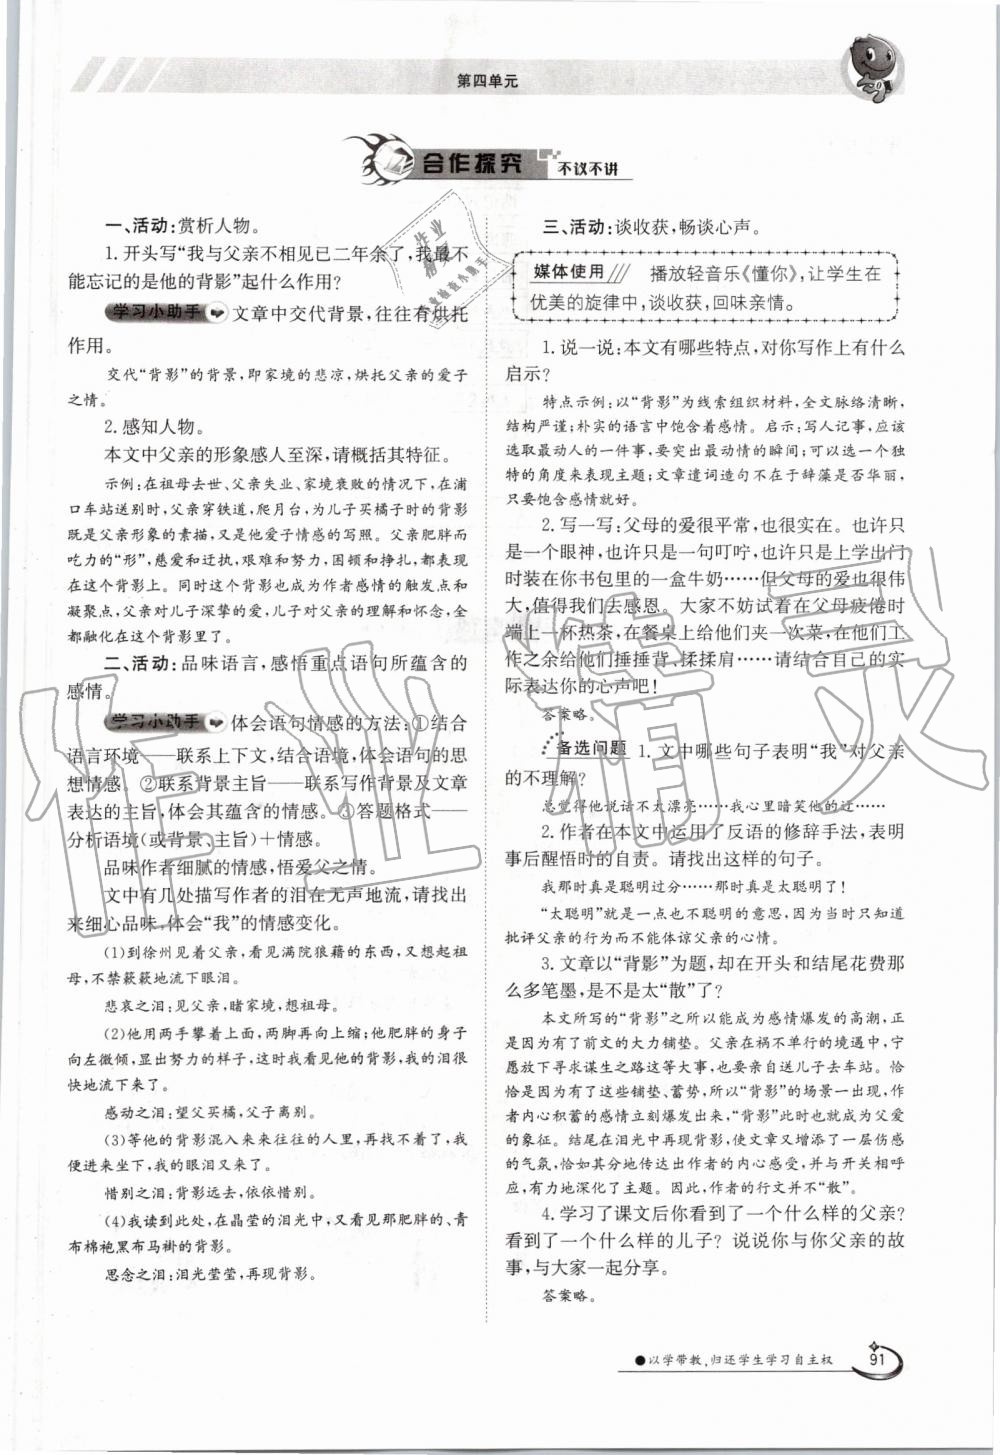 第四单元
合作探究 不议不讲
一、活动:赏析人物。
1. 开头写“我与父亲不相见已二年余了,我最不
能忘记的是他的背影”起什么作用?
学习小助手 文章中交代背景,往往有烘托
作用。
交代“背影”的背景,即家境的悲凉,烘托父亲的爱子
之情。
2. 感知人物。
本文中父亲的形象感人至深,请概括其特征。
示例:在祖母去世、父亲失业、家境衰败的情况下,在浦
口车站送别时,父亲穿铁道,爬月台,为儿子买橘子时的背影
既是父亲形象的素描,又是他爱子情感的写照。父亲肥胖而
吃力的“形”,慈爱和迂执,艰难和努力,困顿和挣扎,都表现
在这个背影上。同时这个背影也成为作者感情的触发点和
凝聚点,父亲对儿子深挚的爱,儿子对父亲的理解和怀念,全
都融化在这个背影里了。
二、活动:品味语言,感悟重点语句所蕴含的
感情。
学习小助手 体会语句情感的方法:①结合
语言环境——联系上下文,结合语境,体会语句的思
想情感。②联系背景主旨——联系写作背景及文章
表达的主旨,体会其蕴含的情感。③答题格式——
分析语境(或背景、主旨)+情感。
品味作者细腻的情感,悟爱父之情。
文中有几处描写作者的泪在无声地流,请找出
来细心品味,体会“我”的情感变化。
(1)到徐州见着父亲,看见满院狼藉的东西,又想起祖
母,不禁簌簌地流下眼泪。
悲哀之泪:见父亲,睹家境,想祖母。
(2)他用两手攀着上面,两脚再向上缩;他肥胖的身子
向左微倾,显出努力的样子,这时我看见他的背影,我的泪很
快地流下来了。
感动之泪:望父买橘,父子离别。
(3)等他的背影混入来来往往的人里,再找不着了,我
便进来坐下,我的眼泪又来了。
惜别之泪:背影远去,依依惜别。
(4)我读到此处,在晶莹的泪光中,又看见那肥胖的、青
布棉袍黑布马褂的背影。
思念之泪:泪光莹莹,再现背影。
三、活动:谈收获,畅谈心声。
媒体使用 播放轻音乐《懂你》,让学生在
优美的旋律中,谈收获,回味亲情。
1. 说一说:本文有哪些特点,对你写作上有什么
启示?
特点示例:以“背影”为线索组织材料,全文脉络清晰,
结构严谨;朴实的语言中饱含着感情。启示:写人记事,应该
选取最动人的一件事,要突出最动情的瞬间;可以选一个独
特的角度来表现主题;文章遣词造句不在于辞藻是否华丽,
只要饱含感情就好。
2. 写一写:父母的爱很平常,也很实在。也许只
是一个眼神,也许只是一句叮咛,也许只是上学出门
时装在你书包里的一盒牛奶……但父母的爱也很伟
大,值得我们去感恩。大家不妨试着在父母疲倦时
端上一杯热茶,在餐桌上给他们夹一次菜,在他们工
作之余给他们捶捶背、揉揉肩……请结合自己的实
际表达你的心声吧!
答案略。
备选问题 1. 文中哪些句子表明“我”对父亲
的不理解?
总觉得他说话不太漂亮……我心里暗笑他的迂……
2. 作者在本文中运用了反语的修辞手法,表明
事后醒悟时的自责。请找出这样的句子。
我那时真是聪明过分……那时真是太聪明了!
“太聪明”就是一点也不聪明的意思,因为当时只知道
批评父亲的行为而不能体谅父亲的心情。
3. 文章以“背影”为题,却在开头和结尾花费那
么多笔墨,是不是太“散”了?
本文所写的“背影”之所以能成为感情爆发的高潮,正
是因为有了前文的大力铺垫。父亲在祸不单行的境遇中,宁
愿放下寻求谋生之路这等大事,也要亲自送儿子去车站。恰
恰是因为有了这些铺垫、蓄势,所以“背影”的场景一出现,作
者内心积蓄的感情立刻爆发出来,“背影”此时也就成为父爱
的象征。结尾在泪光中再现背影,使文章又增添了一层伤感
的气氛,恰如其分地传达出作者的内心感受,并与开关相呼
应,有力地深化了主题。因此,作者的行文并不“散”。
4. 学习了课文后你看到了一个什么样的父亲?
看到了一个什么样的儿子? 说说你与你父亲的故
事,与大家一起分享。
答案略。
●以学带教,归还学生学习自主权
91
作业精灵